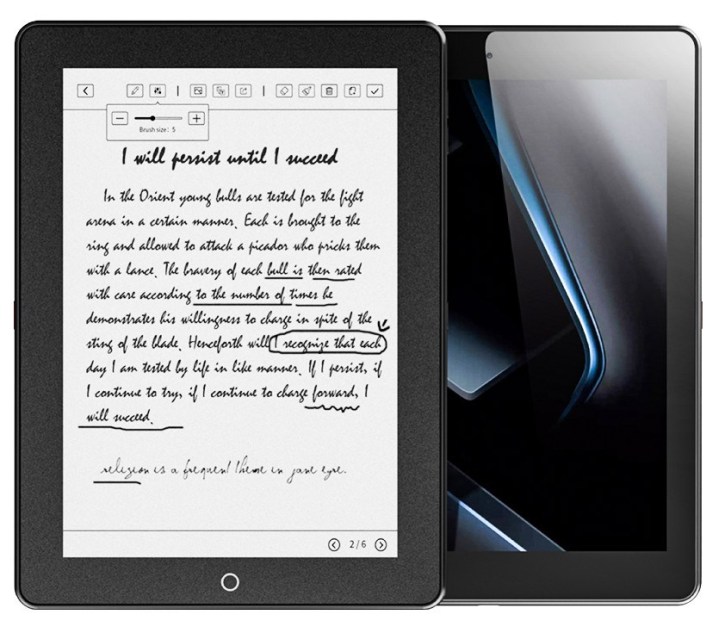 Brush size: 5
I will persist until I succeed
In the Orient young bulls are tested for the fight
arena in a certain manner. Each is brought to the
ring and allowed to attack a picador who pricks them
with a lance. The bravery of each bull is then rated
with care according to the number of times he
demonstrates his willingness to charge in spite of the
sting of the blade. Henceforth will I recognize that each
day I am tested by life in like manner. If I persist, if
I continue to try, if I continue to charge forward, I
will succeed.
religion is a frequent theme in jane eyre.
2/6